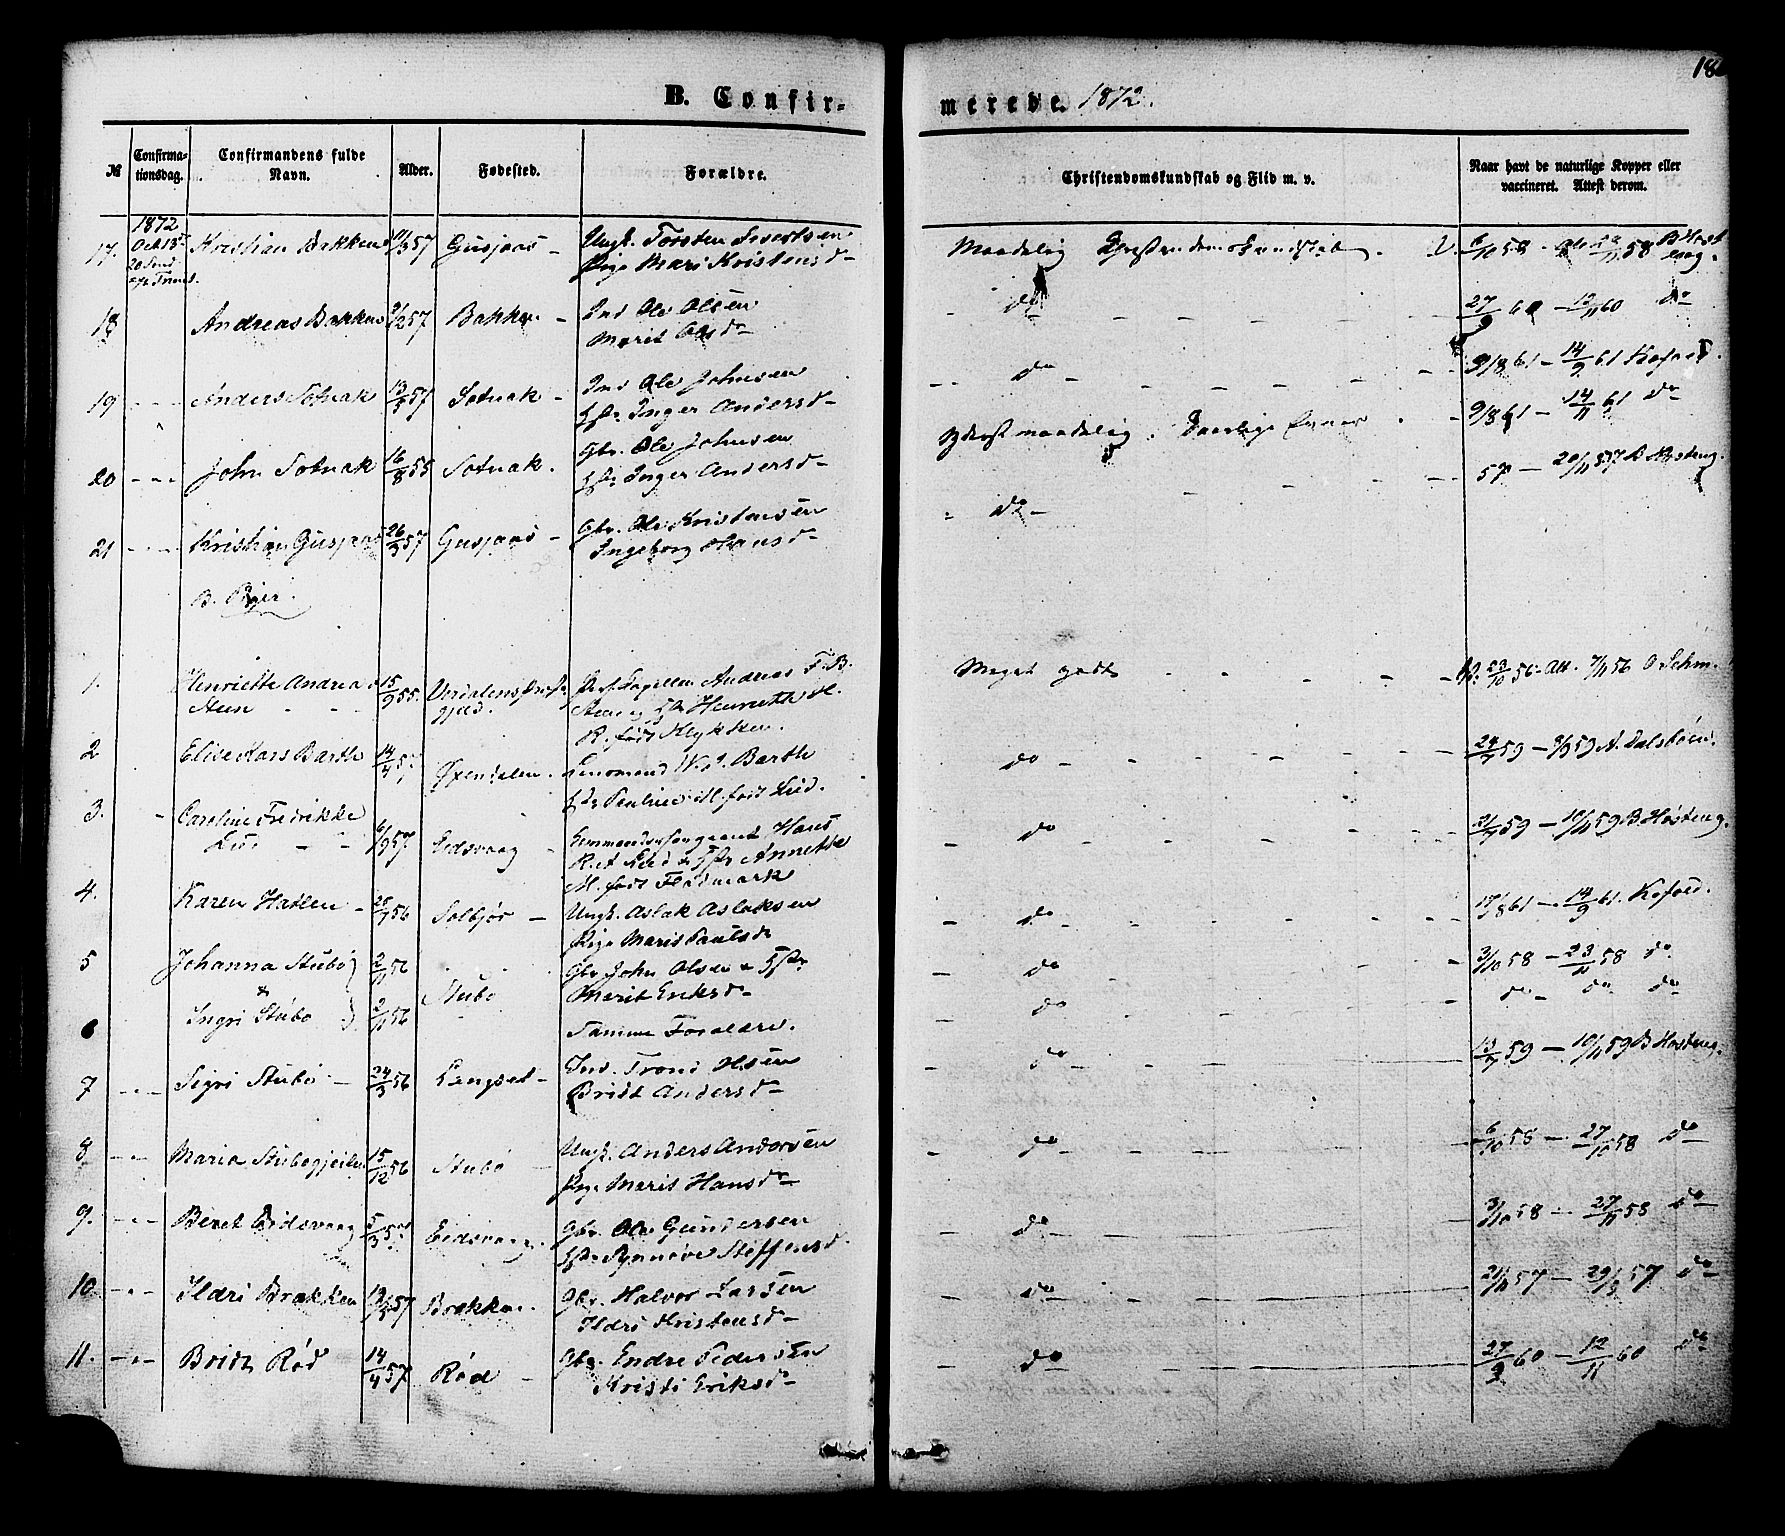 18
B. Confir-
merede. 1872.
№
Confirma-
tionsdag.
Confirmandens fulde
Navn.
Alder.
Fødested.
Forældre.
Christendomskundskab og Flid m. v.
Naar havt de naturlige Kopper eller
vaccineret. Attest derom.
1872
Oct 13de
20 Sønd
17. Kristian Bakken 57 Gusjaas - Ungk. Torsten Sivertsen
Pige Mari Kristensd- Maadelig Christendomskundskab. V. 6/10 58 - 58
18 Andreas Bakken 2 57 Bakken - Ind Ole Olsen
Marit Olsd- do 27/9 60 - 12/11 60 do
19 Anders Sotnak 13/5 57 Sotnak - Ind Ole Johnsen
Hstr Inger Andersd- do 9/8 61 - 14/9 61 Kofoed.
20 John Sotnak 16/8 55 Sotnak. Gbr. Ole Johnsen
Hstr Inger Andersd- Yderst maadelig. Daarlige Evner 9/8 61 - 14/11 61 do
21 Kristian Gusjaas 26/3 57 Gusjaas - Gbr. Ole Kristensen
Ingeborg Hansd- do - 57 - 20/11 57 B Høsteng.
B. Piger.
1. Henriette Andrea
Steen 15/9 55. Værdalens Præste-
gjeld. Pers. Capellan Andreas F. B.
Steen og Hu Henriette M.
R. født Klykken. Meget godt V. 23/10 56 - Att. 7/11 56 O Schm.
2 Elise Kars Barth 14/4 57 Øxendalen. Lensmand W. Barth
Hstr Pauline M. født Lied. do 24/7 59 - 8/9 59 A. Dalsbøen.
3. Caroline Fredrikke
Lied 6/9 57 Eidsvaag - Kommandersergeant Hans
R. et Lied & Hstr Annette
M. født Flødmark do 21/7 59 - 10/11 59 B Høsteng.
4. Karen Hatlen - 28/7 56 Solbjør - Ungk. Aslak Aslaksen
Pige Marit Paulsd- do 17/8 61 - 14/9 61. Kofoed.
5 Johanna Stubø 2/11 56 Stubø Gbr John Olsen & Hstr
Marit Eriksd- do 3/10 58 - 23/11 58 do
&
6 Ingri Stubø 2/11 56 Samme Forældre. do do - do do
7 Sigri Stubø - 24/3 56 Langset - Ind. Trond Olsen
Bridt Andersd- do 13/7 59 - 10/11 59 B Høsteng.
8 Maria Stubøgjeilen 15/12 56 Stubø Ungk. Anders Andersen
Pige Marit Hansd- do 6/10 58 - 27/10 58 do
9. Beret Eidsvaag 5/3 57 Eidsvaag. Gbr. Ole Gundersen
Hstr Synnøve Steffensd. do 3/10 58 - 27/11 58 do
10 Ildri Brakken 57 Brakken. Gbr. Halvor Larsen
Ildri Kristensd- do 57 - 57 do
11. Bridt Rød 14/4 57 Rød - Gbr. Endre Pedersen
Kristi Eriksd- do 27/9 60 - 12/11 60 do